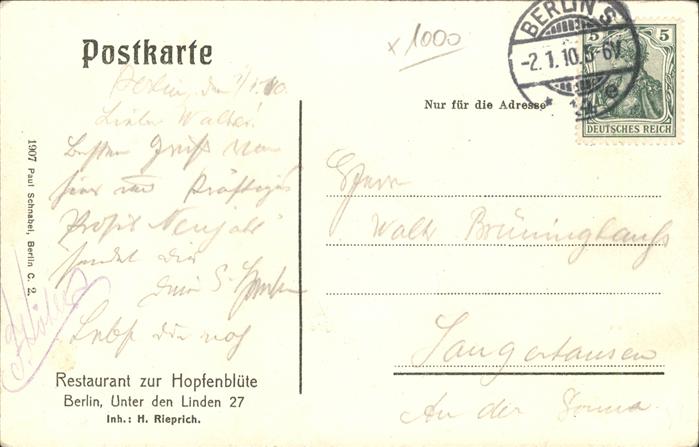 Postkarte
x 1000
BERLIN S.
-2.1.10.5-6V.
* 14 e
5 5
DEUTSCHES REICH
Nur für die Adresse
Berlin, den 1/1.10.
Lieber Walter!
Besten Gruß von
hier und kräftiges
Prosit Neujahr
sendet Dir
Dein
Lebst Du noch
Herrn
Walter Brüninghaus
Sangerhausen
An der
1907 Paul Schnabel, Berlin C. 2.
Restaurant zur Hopfenblüte
Berlin, Unter den Linden 27
Inh.: H. Rieprich.